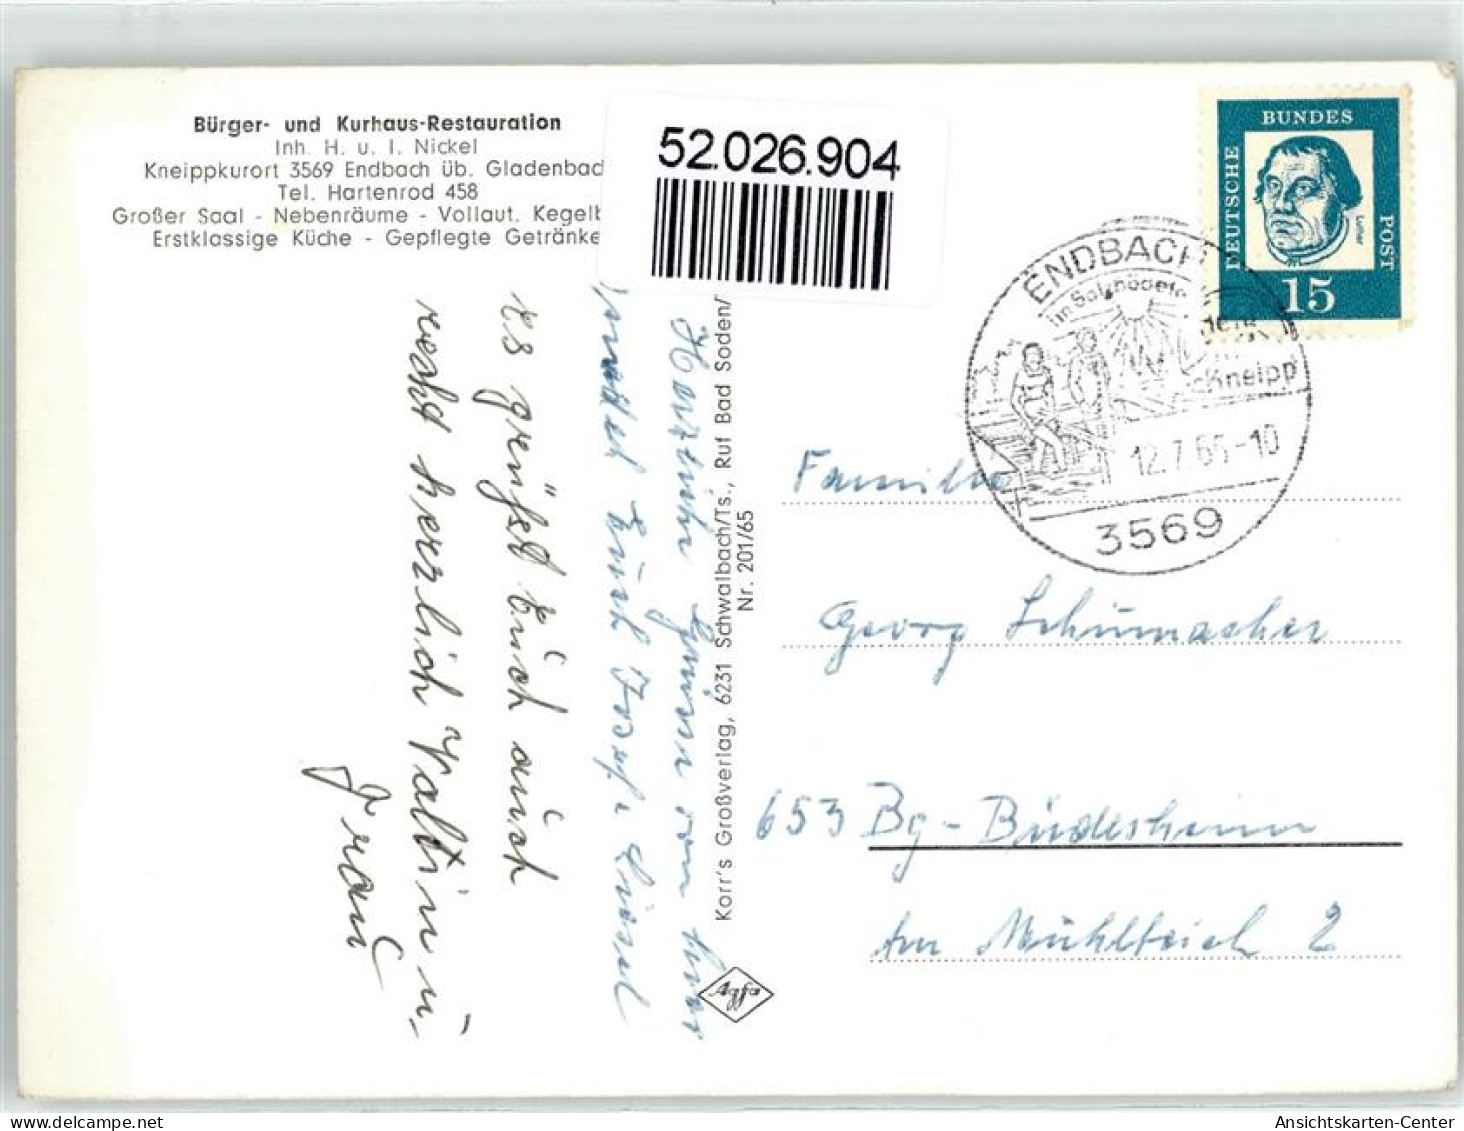 Bürger- und Kurhaus-Restauration
Inh. H. u. I. Nickel
Kneippkurort 3569 Endbach üb. Gladenbac
Tel. Hartenrod 458
Großer Saal - Nebenräume - Vollaut. Kegelb
Erstklassige Küche - Gepflegte Getränke
52.026.904
DEUTSCHE
BUNDES
POST
Luther
15
ENDBACH
im Salzbödetal
Kneipp
12.7.65-10
3569
Herzliche Grüsse von hier
sendet Euch Josef
Es grüßt Euch auch
recht herzlich Valtin u.
Frau
Korr's Großverlag, 6231 Schwalbach/Ts., Ruf Bad Soden/
Nr. 201/65
Agfa
Familie
Georg Schumacher
653 Bg-Büdesheim
Am Mühlteich 2
Ansichtskarten-Center